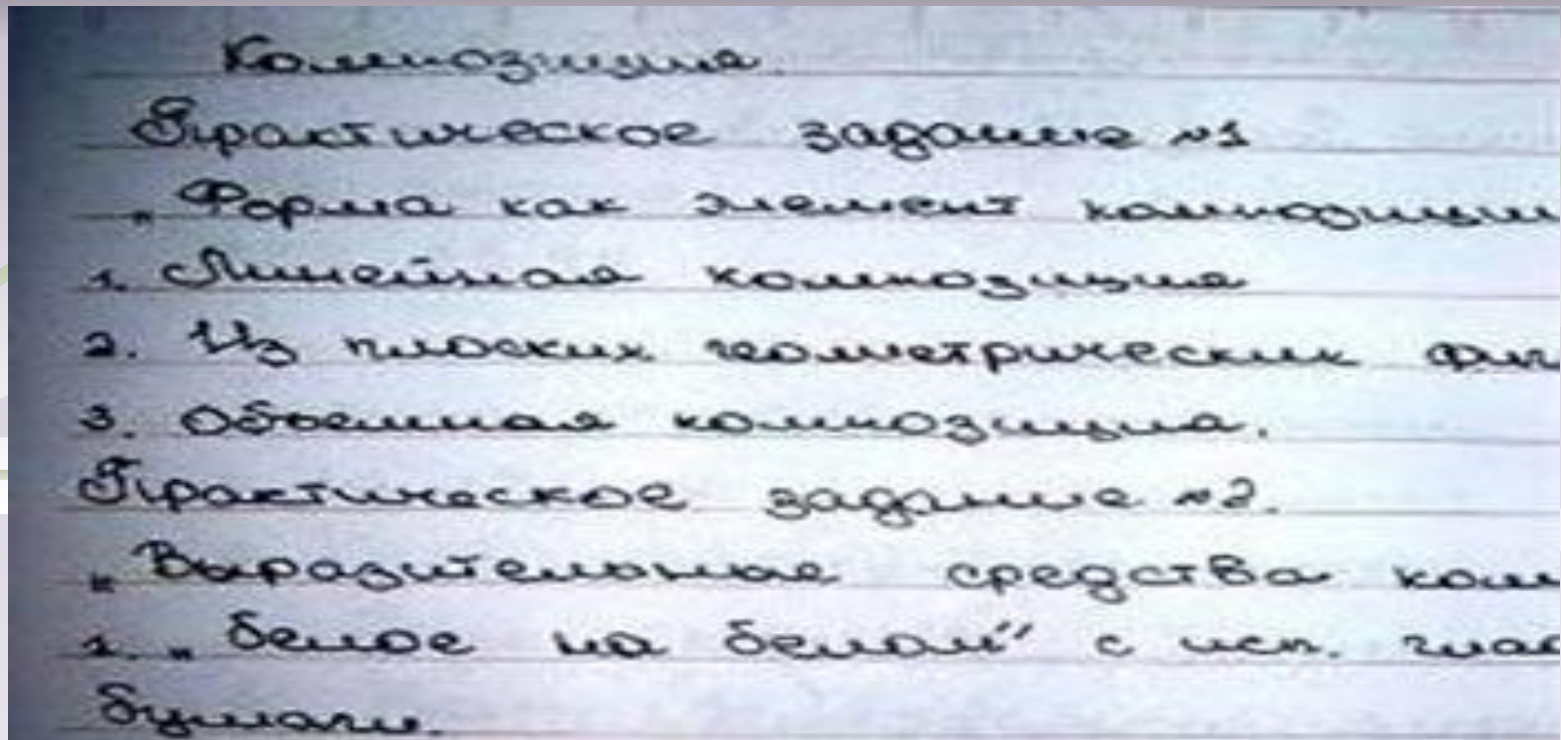 Композиция.
Практическое задание №1
„Форма как элемент композиции
1. Линейная композиция
2. Из плоских геометрических фиг
3. Объемная композиция.
Практическое задание №2.
„Выразительные средства комп
1. „Белое на белом" с исп.
бумаги.